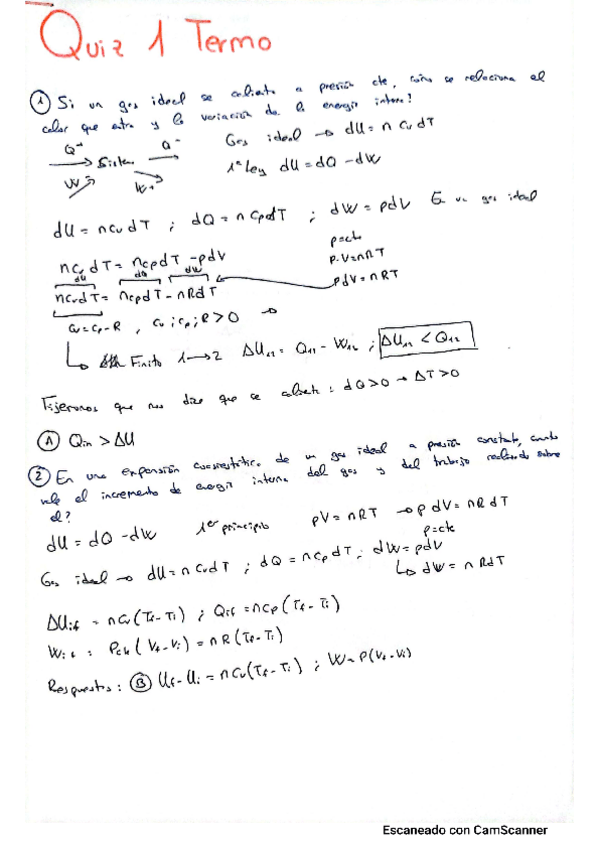 Quiz 1 Termo
① Si un gas ideal se calienta a presión cte, cómo se relaciona el
calor que entra y la variación de la energía interna?
Q+ Sistema Q-
W- W+
Gas ideal → dU = n cv dT
1ª Ley dU = dQ - dW
dU = n cv dT ; dQ = n cp dT ; dW = pdV En un gas ideal
p=cte
p·V=nRT
pdV = nRT
n cv dT = n cp dT - pdV
dU dQ dW
n cv dT = n cp dT - nRdT
cv = cp - R , cv ; cp ; R > 0 →
Finito 1→2 ΔU12 = Q12 - W12 ; ΔU12 < Q12
Fijémonos que nos dice que se calienta : dQ>0 → ΔT>0
Ⓐ Qin > ΔU
② En una expansión cuasiestática de un gas ideal a presión constante, cuanto
vale el incremento de energía interna del gas y del trabajo realizado sobre
él?
dU = dQ - dW 1er principio pV = nRT → p dV = n R dT
p=cte
Gas ideal → dU = n cv dT ; dQ = n cp dT ; dW = pdV
↳ dW = n R dT
ΔUif = n cv (Tf - Ti) ; Qif = n cp (Tf - Ti)
Wif = Pcte (Vf - Vi) = n R (Tf - Ti)
Respuestas : Ⓑ Uf - Ui = n cv (Tf - Ti) ; W = P(Vf - Vi)
Escaneado con CamScanner